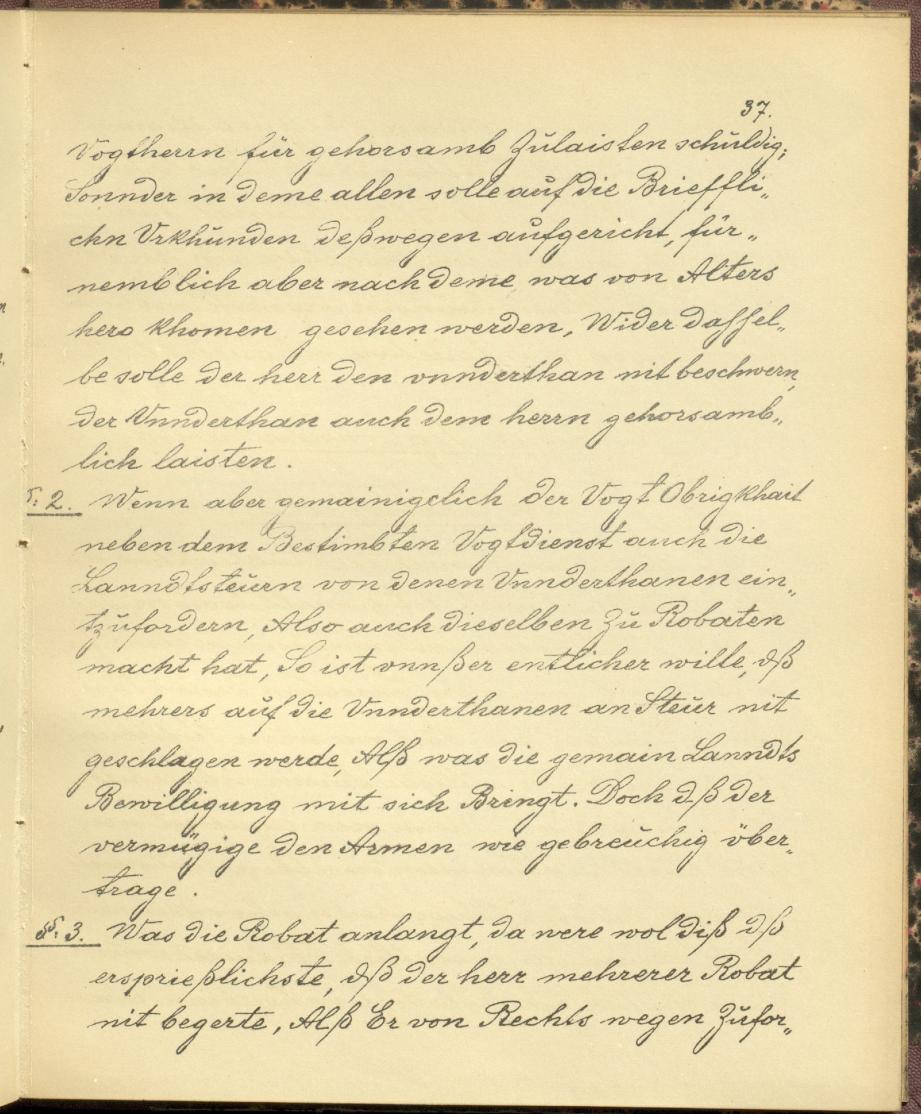 37.
Vogtherrn für gehorsamb Zulaisten schuldig;
Sonnder in deme allen solle auf die Brieffli„
chn Vrkhunden deßwegen aufgericht, für„
nemblich aber nach deme, was von Alters
hero khomen gesehen werden, Wider dassel„
be solle der herr den vnnderthan nit beschwern,
der Vnnderthan auch dem herrn gehorsamb„
lich laisten.
§: 2. Wenn aber gemainigclich der Vogt Obrigkhait
neben dem Bestimbten Vogtdienst auch die
Lanndtsteürn von denen Vnnderthanen ein„
tzufordern, Also auch dieselben Zu Robaten
macht hat, So ist vnnßer entlicher wille, dß
mehrers auf die Vnnderthanen an Steür nit
geschlagen werde, Alß was die gemain Lanndts
Bewilligung mit sich Bringt. Doch dß der
vermügige den Armen wie gebreüchig über„
trage.
§: 3. Was die Robat anlangt, da were wol diß dß
ersprießlichste, dß der herr mehrerer Robat
nit begerte, Alß Er von Rechts wegen Zufor„